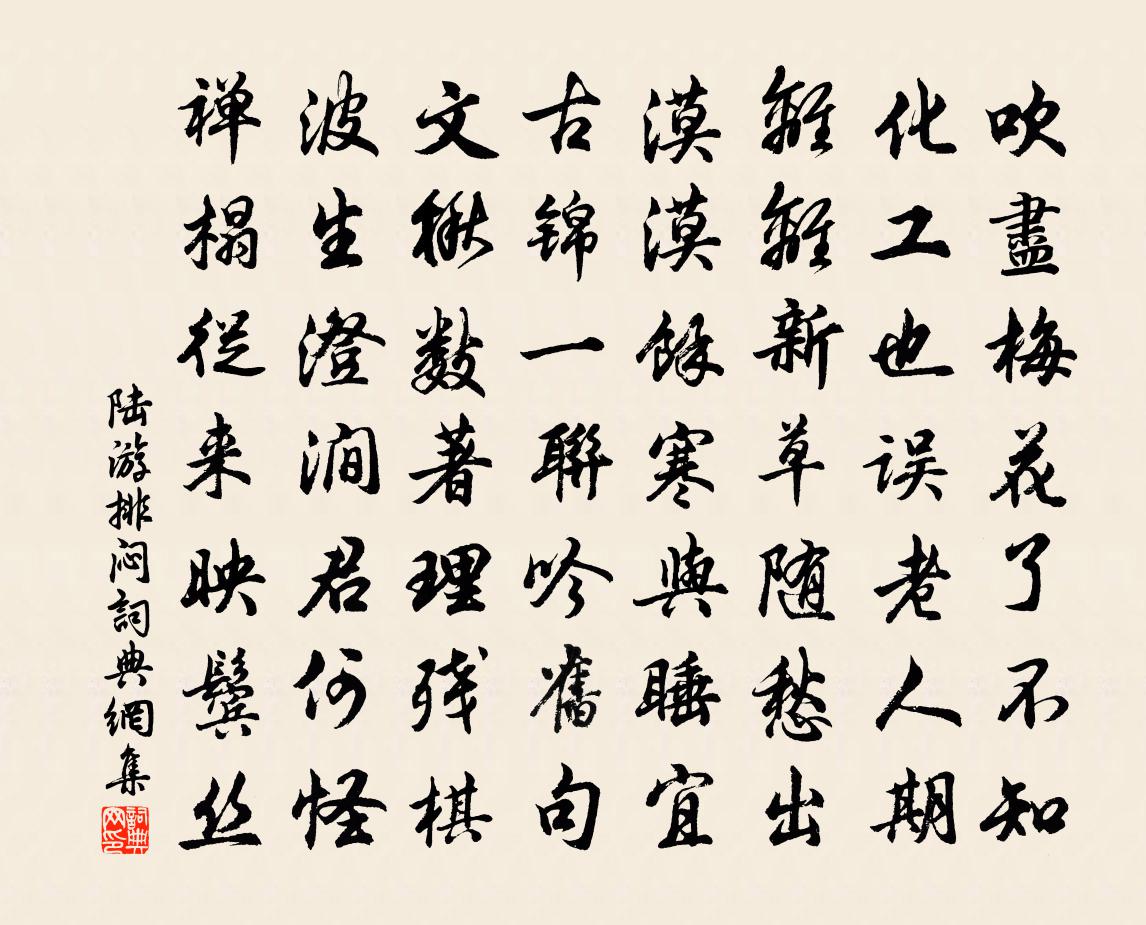 吹盡梅花了不知
化工也误老人期
離離新草随愁出
漠漠餘寒與睡宜
古锦一聯吟舊句
文楸数著理残棋
波生澄澗君何怪
禅榻從来映鬓丝
陆游排闷詞典網集
詞典网印